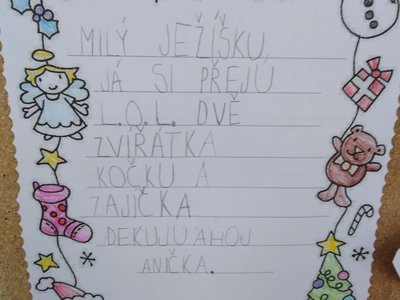 MILÝ JEŽÍŠKU,
JÁ SI PŘEJU
L.O.L. DVĚ
ZVÍŘÁTKA
KOČKU A
ZAJÍČKA
DĚKUJU AHOJ
ANIČKA.